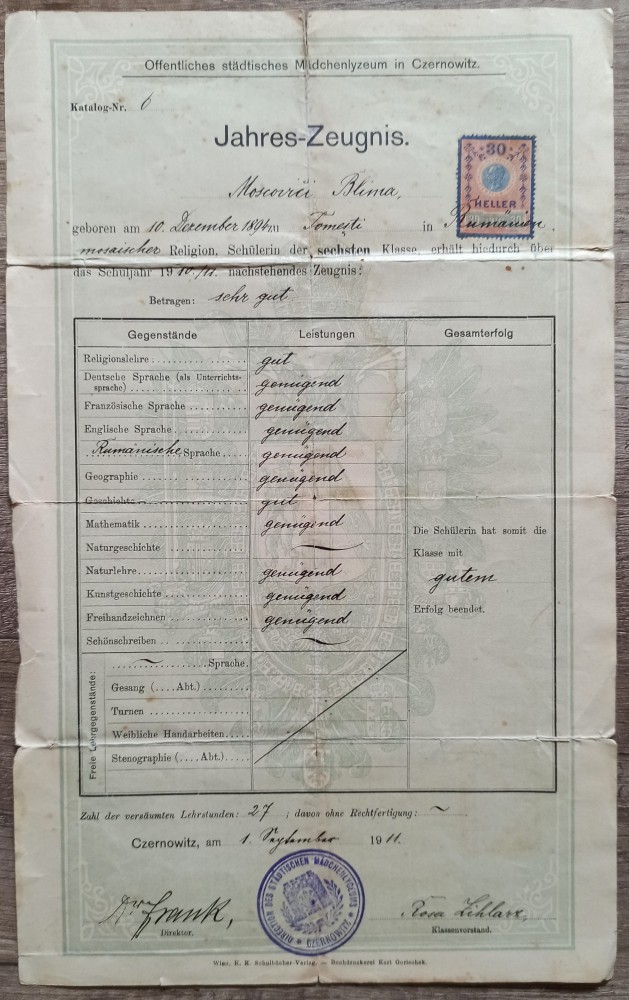 Öffentliches städtisches Mädchenlyzeum in Czernowitz.
Katalog-Nr. 6
Jahres-Zeugnis.
30
HELLER
Moscovici Blima,
geboren am 10. Dezember 1894 zu Tomesti in Rumänien,
mosaischer Religion, Schülerin der sechsten Klasse, erhält hiedurch über
das Schuljahr 1910/11. nachstehendes Zeugnis:
Betragen: sehr gut
Gegenstände Leistungen Gesamterfolg
Religionslehre gut
Deutsche Sprache (als Unterrichts-
sprache) genügend
Französische Sprache genügend
Englische Sprache genügend
Rumänische Sprache genügend
Geographie genügend
Geschichte gut
Mathematik genügend
Naturgeschichte —
Naturlehre genügend
Kunstgeschichte genügend
Freihandzeichnen genügend
Schönschreiben —
Die Schülerin hat somit die
Klasse mit
gutem
Erfolg beendet.
Freie Lehrgegenstände:
~ Sprache
Gesang (.... Abt.)
Turnen
Weibliche Handarbeiten
Stenographie (.... Abt.)
Zahl der versäumten Lehrstunden: 27 ; davon ohne Rechtfertigung: ~
Czernowitz, am 1. September 1911.
DIRECTION DES STÄDTISCHEN MÄDCHENLYCEUMS
CZERNOWITZ
Dr Frank,
Direktor.
Rosa Zihlarz
Klassenvorstand.
Wien, K. K. Schulbücher-Verlag. — Buchdruckerei Karl Gorischek.